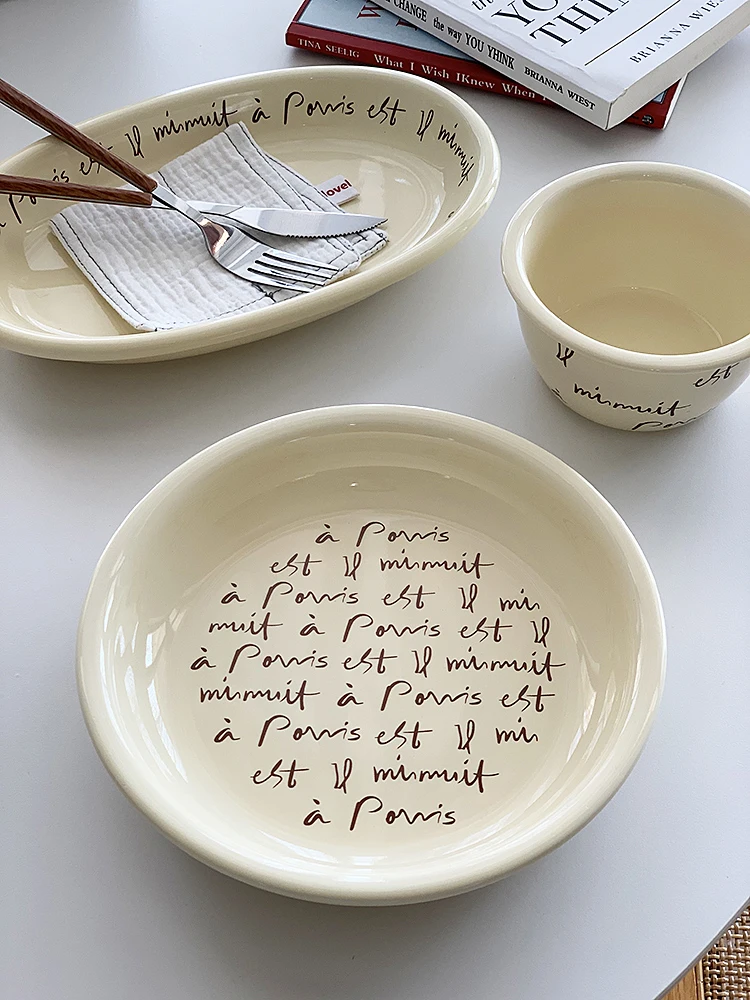 CHANGE the way YOU YHINK BRIANNA WIEST
BRIANNA WIES
TINA SEELIG What I Wish IKnew When
à Paris est il minuit à Paris est il minuit
lovel
il est
minuit
Paris
à Paris
est il minuit
à Paris est il mi
nuit à Paris est il
à Paris est il minuit
minuit à Paris est
à Paris est il mi
est il minuit
à Paris